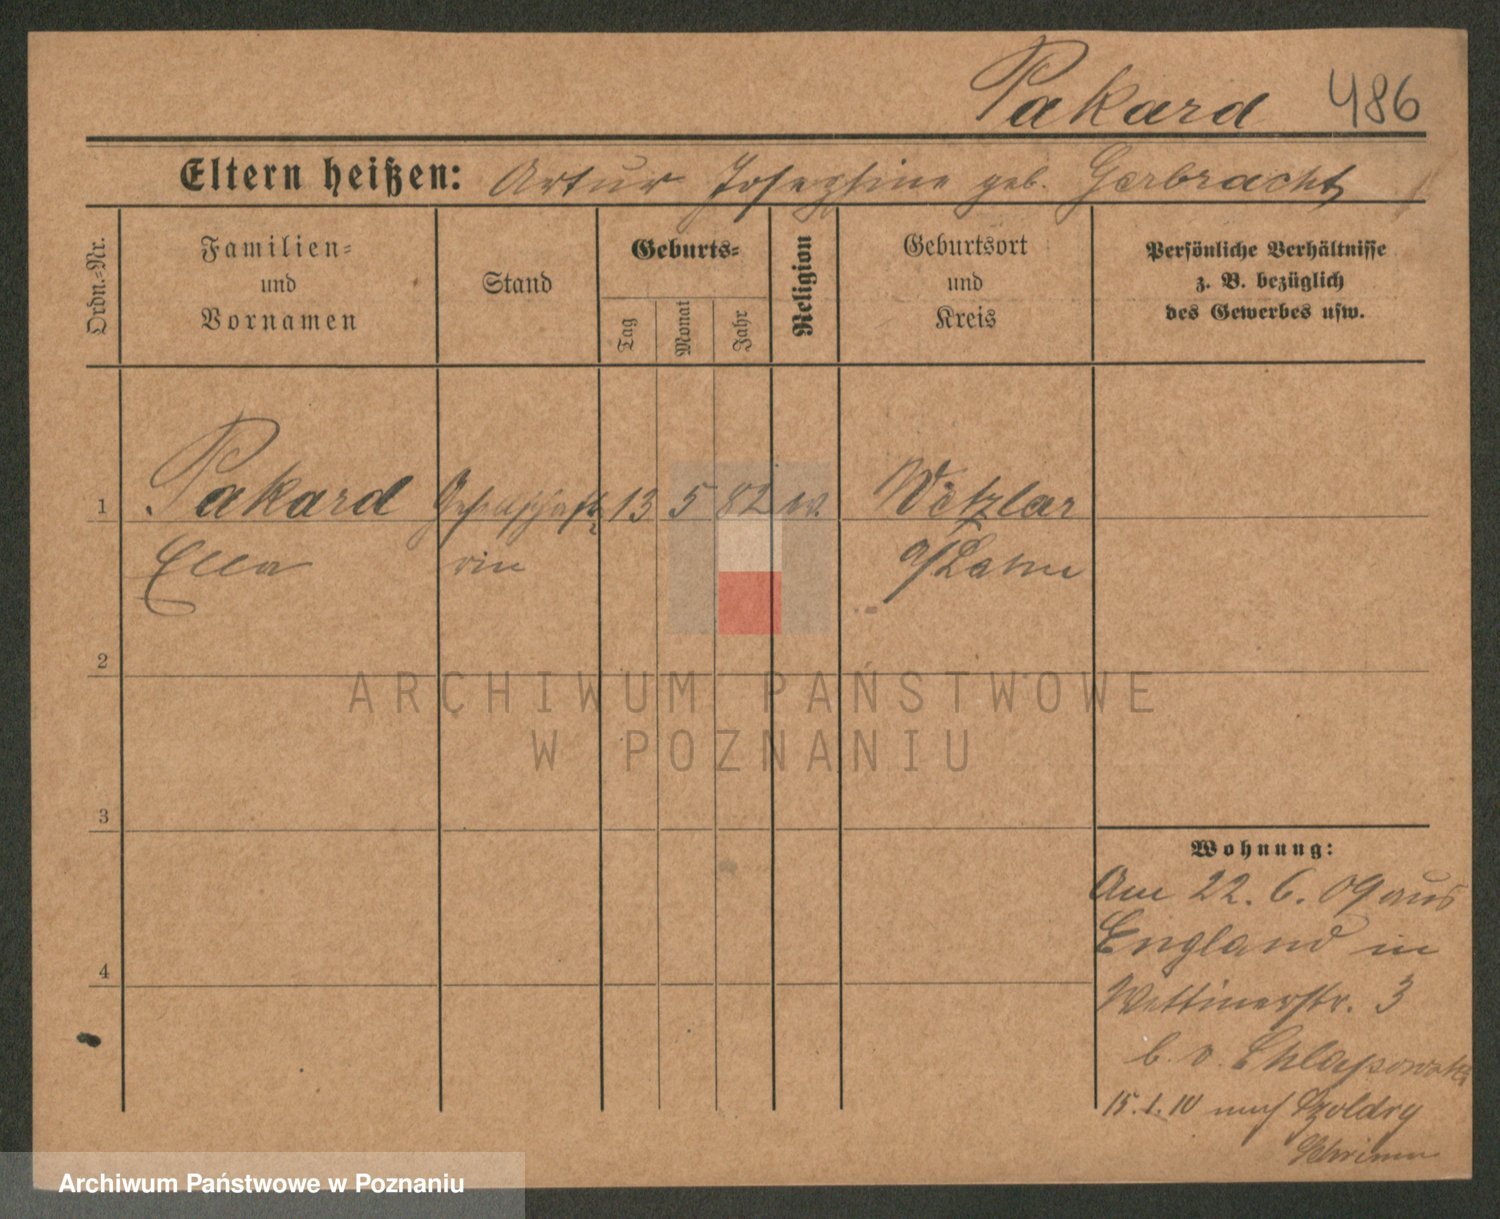 Pakard 486
Eltern heißen: Artur Josephine geb. Gerbracht
Ordn.=Nr.
Familien=
und
Vornamen
Stand
Geburts=
Tag
Monat
Jahr
Religion
Geburtsort
und
Kreis
Persönliche Verhältnisse
z. B. bezüglich
des Gewerbes usw.
1 Pakard Gesellschafte 13 5 82 ev. Wetzlar
Ella rin a/Lahn
2
3
4
Wohnung:
Am 22. 6. 09 aus
England in
Wettinerstr. 3
b. v. Chlapowski
15.1.10 nach Szoldry
Schrimm
ARCHIWUM PAŃSTWOWE
W POZNANIU
Archiwum Państwowe w Poznaniu